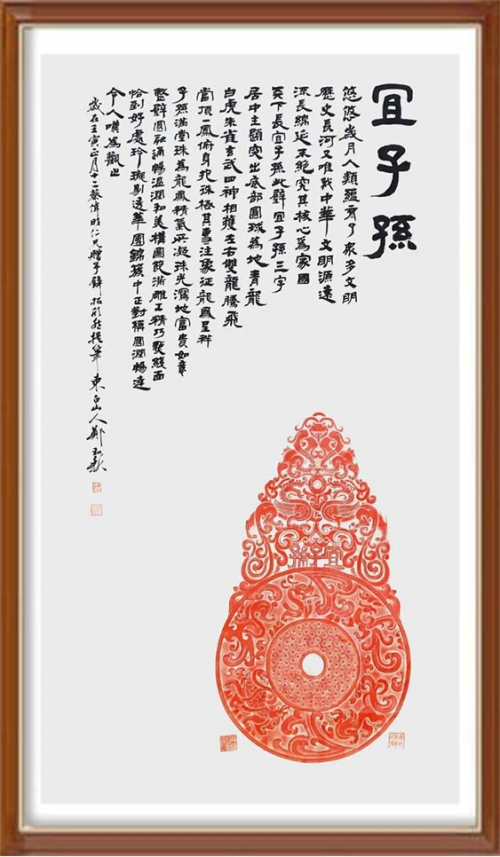 宜子孫
悠悠歲月人類蘊育了眾多文明
歷史長河又唯我中華文明源遠
流長綿延不絕究其核心為家國
天下長宜子孫此璧宜子孫三字
居中主題突出底部圓珠為地青龍
白虎朱雀玄武四神相護左右雙龍騰飛
當頂一鳳俯身抱珠極其專注象征龍鳳呈祥
子孫滿堂珠為龍鳳精氣所凝珠光瀉地富貴如意
整璧圓融滿暢溫潤和美構圖飽滿雕工精巧雙層面
恰到好處玲瓏剔透華圖銘篆中正對稱圓潤暢達
令人嘆為觀止
歲在壬寅正月十二 仁兄贈予 拓於 東山人鄭
宜子孫